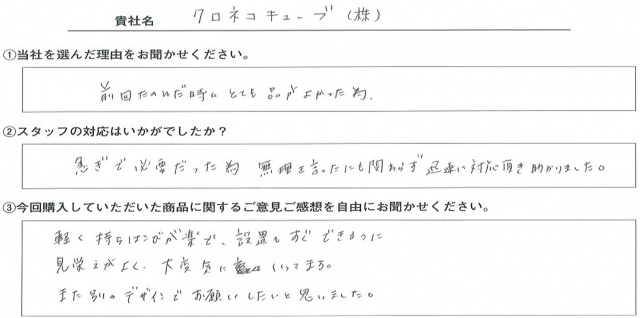 貴社名 クロネコキューブ(株)
①当社を選んだ理由をお聞かせください。
前回たのんだ時にとても品がよかった為。
②スタッフの対応はいかがでしたか?
急ぎで必要だった為 無理を言ったにも関わらず迅速に対応頂き助かりました。
③今回購入していただいた商品に関するご意見ご感想を自由にお聞かせください。
軽く持ちはこびが楽で、設置もすぐできるのに
見栄えがよく、大変気に入っています。
また別のデザインでお願いしたいと思いました。